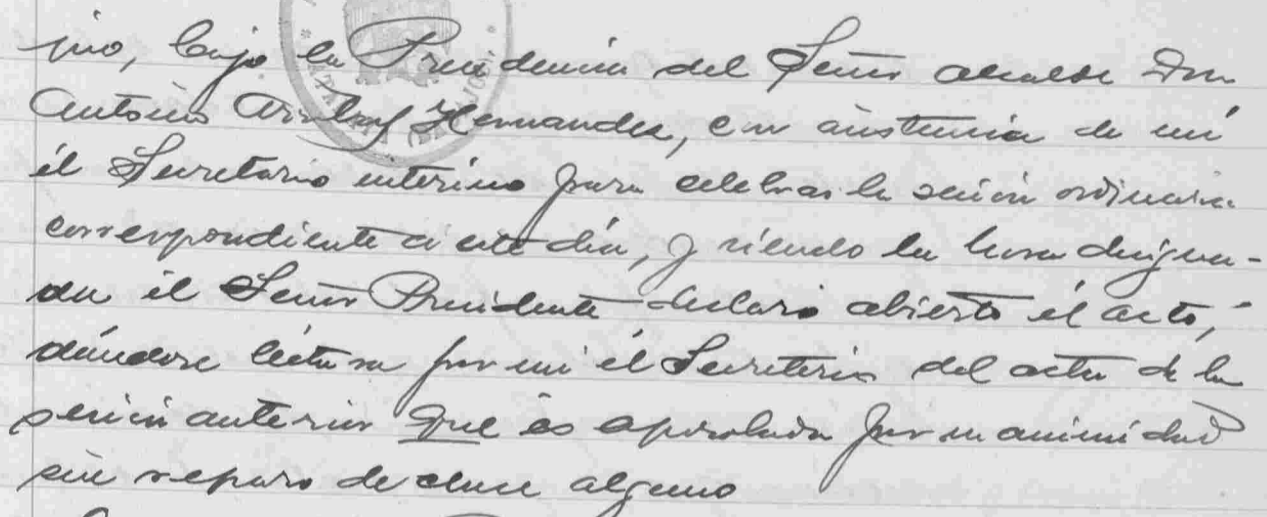 pio, bajo la Presidencia del Señor alcalde Don
Antonio Hernandez, con asistencia de mi
él Secretario interino para celebrar la sesión ordinaria
correspondiente a este día, y siendo la hora designa-
da él Señor Presidente declaró abierto él acto,
dándose léctura por mi él Secretario del acta de la
sesión anterior que és aprobada por unanimidad
sin reparo de clase alguno